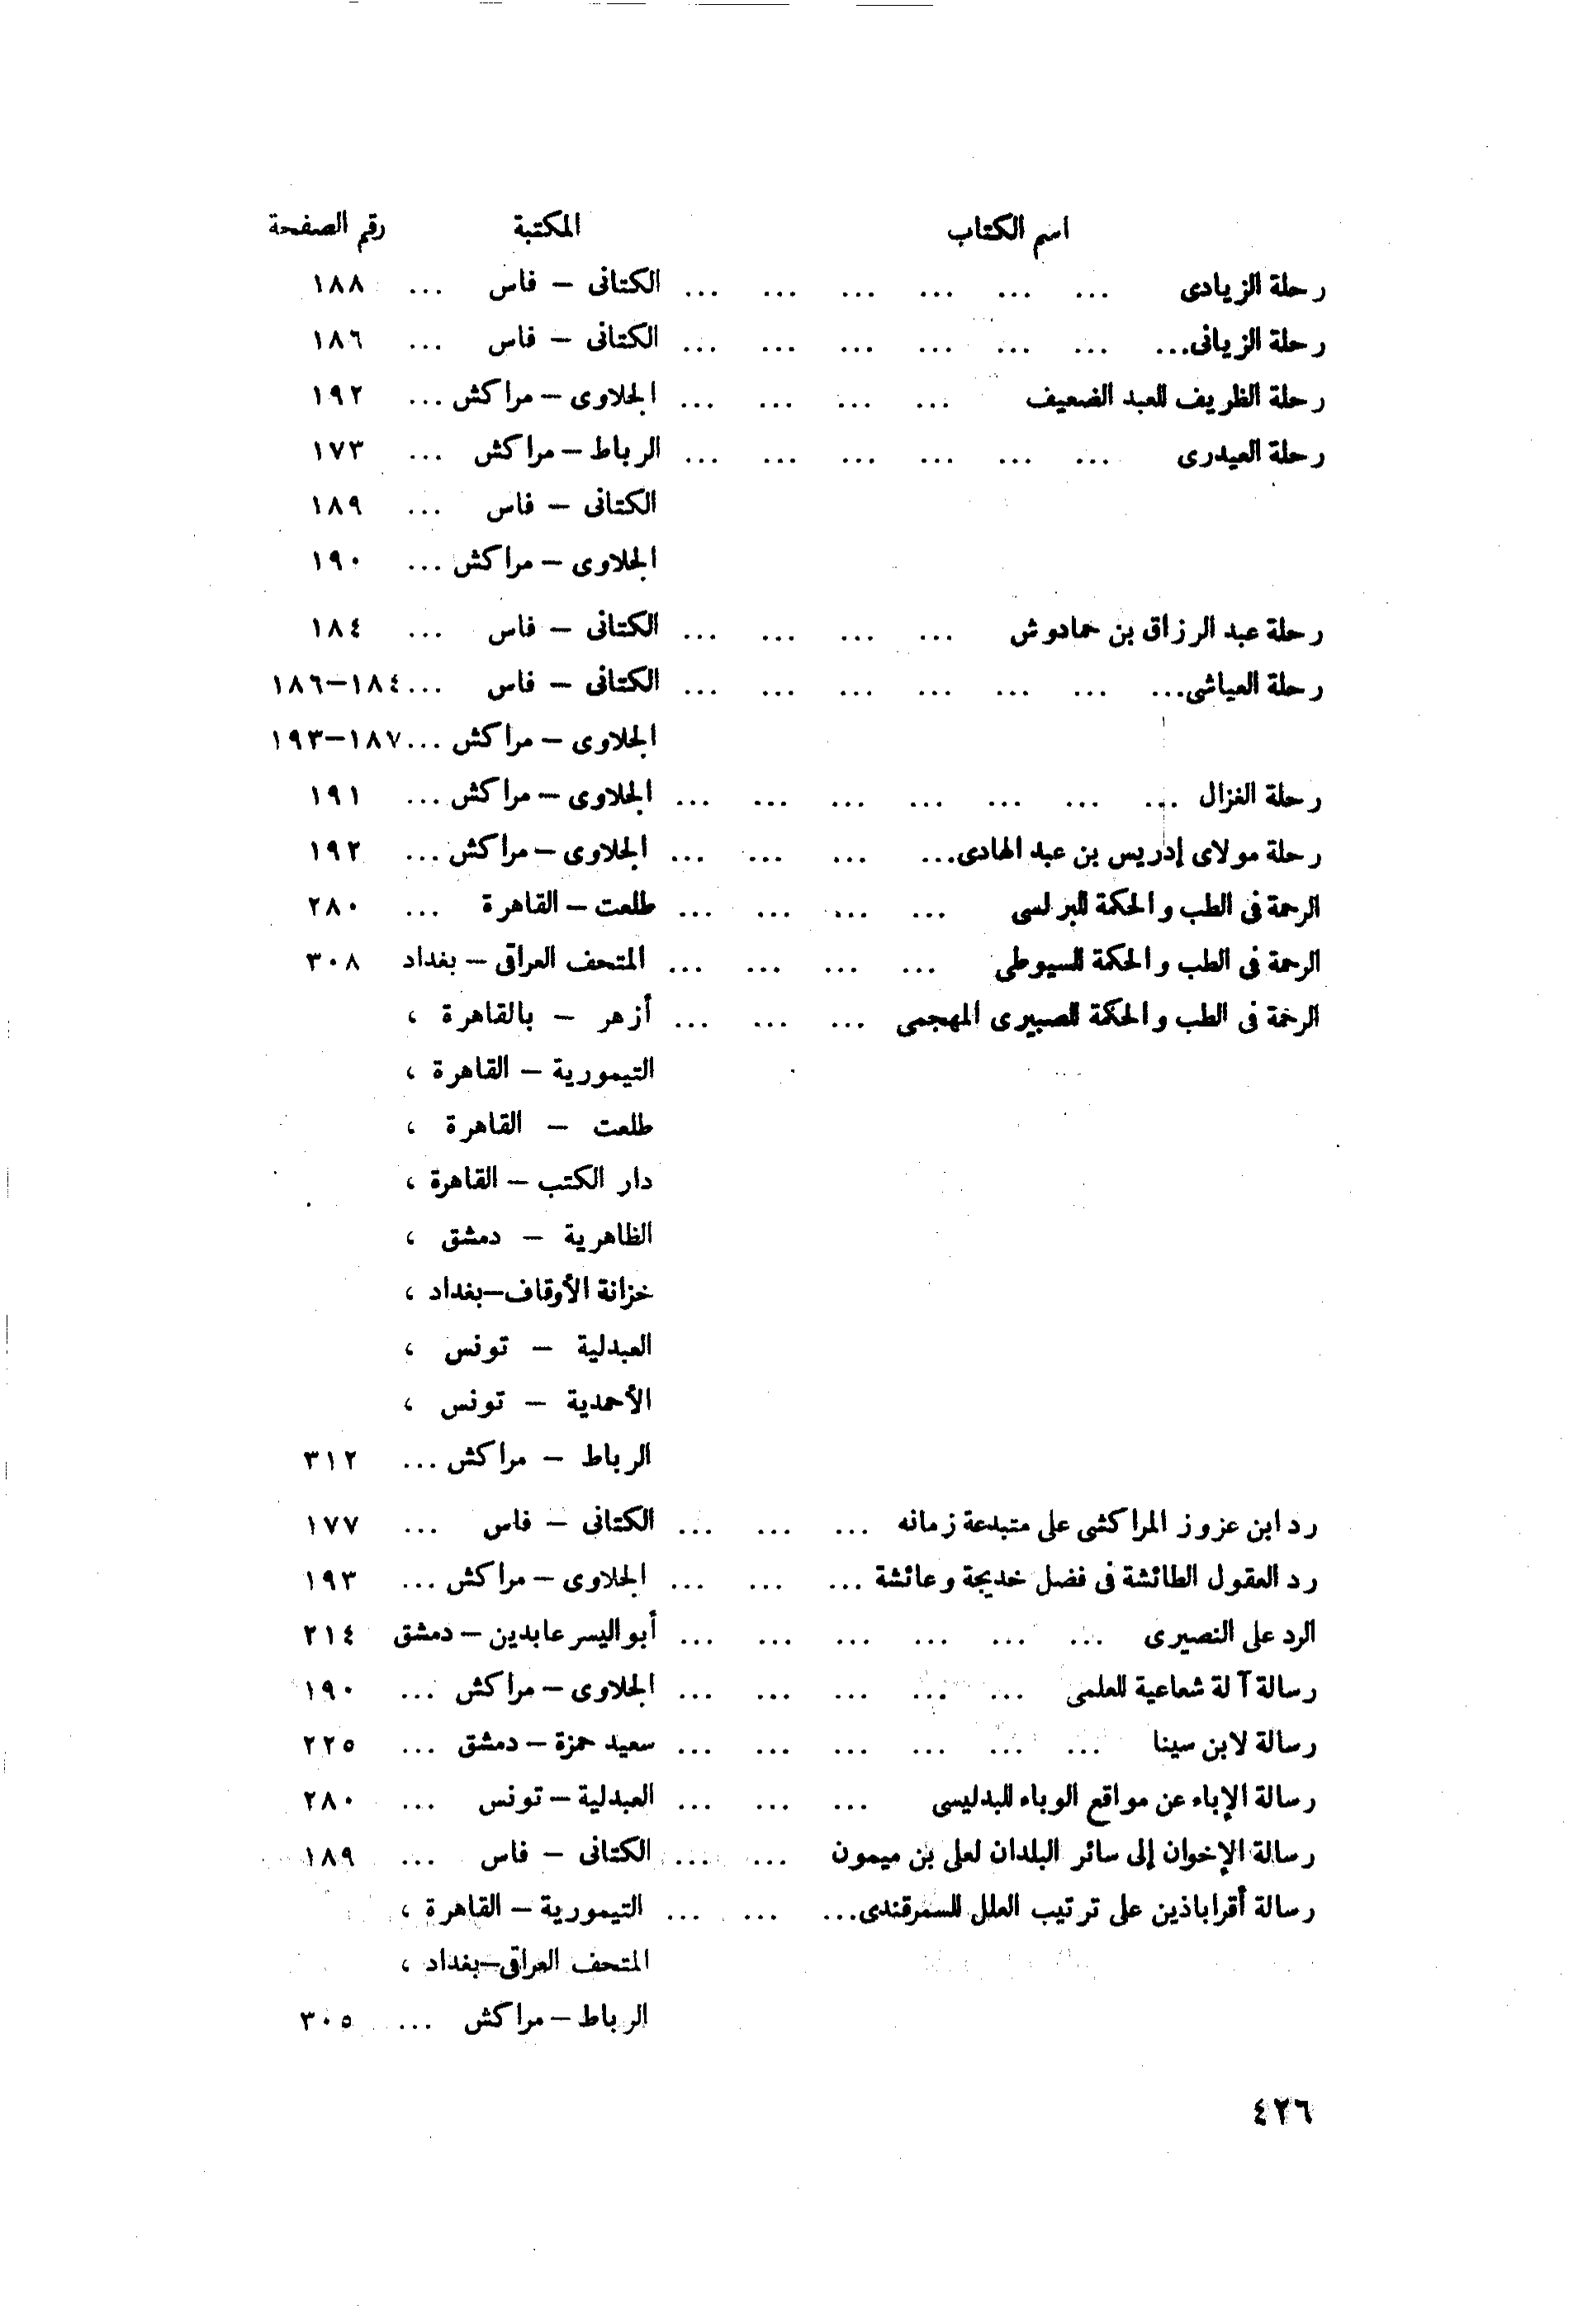 اسم الكتاب المكتبة رقم الصفحة
رحلة الزيادى ... ... ... ... ... ... الكتانى – فاس ... ١٨٨
رحلة الزيانى... ... ... ... ... ... ... الكتانى – فاس ... ١٨٦
رحلة الظريف للعبد الضعيف ... ... ... ... الجلاوى – مراكش ... ١٩٢
رحلة العيدرى ... ... ... ... ... ... الرباط – مراكش ... ١٧٣
الكتانى – فاس ... ١٨٩
الجلاوى – مراكش ... ١٩٠
رحلة عبد الرزاق بن حمادوش ... ... ... ... الكتانى – فاس ... ١٨٤
رحلة العياشى... ... ... ... ... ... ... الكتانى – فاس ...١٨٤–١٨٦
الجلاوى – مراكش ...١٨٧–١٩٣
رحلة الغزال ... ... ... ... ... ... ... الجلاوى – مراكش ... ١٩١
رحلة مولاى إدريس بن عبد الهادى... ... ... ... الجلاوى – مراكش ... ١٩٢
الرحمة فى الطب والحكمة للبرلسى ... ... ... ... طلعت – القاهرة ... ٢٨٠
الرحمة فى الطب والحكمة للسيوطى ... ... ... ... المتحف العراقى – بغداد ٣٠٨
الرخمة فى الطب والحكمة للصبيرى المهجمى ... ... ... أزهر – بالقاهرة ،
التيمورية – القاهرة ،
طلعت – القاهرة ،
دار الكتب – القاهرة ،
الظاهرية – دمشق ،
خزانة الأوقاف–بغداد ،
العبدلية – تونس ،
الأحمدية – تونس ،
الرباط – مراكش ... ٣١٢
رد ابن عزوز المراكشى على متبدعة زمانه ... ... ... الكتانى – فاس ... ١٧٧
رد العقول الطائشة فى فضل خديجة وعائشة ... ... ... الجلاوى – مراكش ... ١٩٣
الرد على النصيرى ... ... ... ... ... ... أبو اليسر عابدين – دمشق ٢١٤
رسالة آلة شعاعية للعلمى ... ... ... ... ... الجلاوى – مراكش ... ١٩٠
رسالة لابن سينا ... ... ... ... ... ... سعيد حمزة – دمشق ... ٢٢٥
رسالة الإباء عن مواقع الوباء للبدليسى ... ... ... العبدلية – تونس ... ٢٨٠
رسالة الإخوان إلى سائر البلدان لعلى بن ميمون ... ... الكتانى – فاس ... ١٨٩
رسالة أقراباذين على ترتيب العلل للسمرقندى... ... ... التيمورية – القاهرة ،
المتحف العراقى–بغداد ،
الرباط – مراكش ... ٣٠٥
٤٢٦